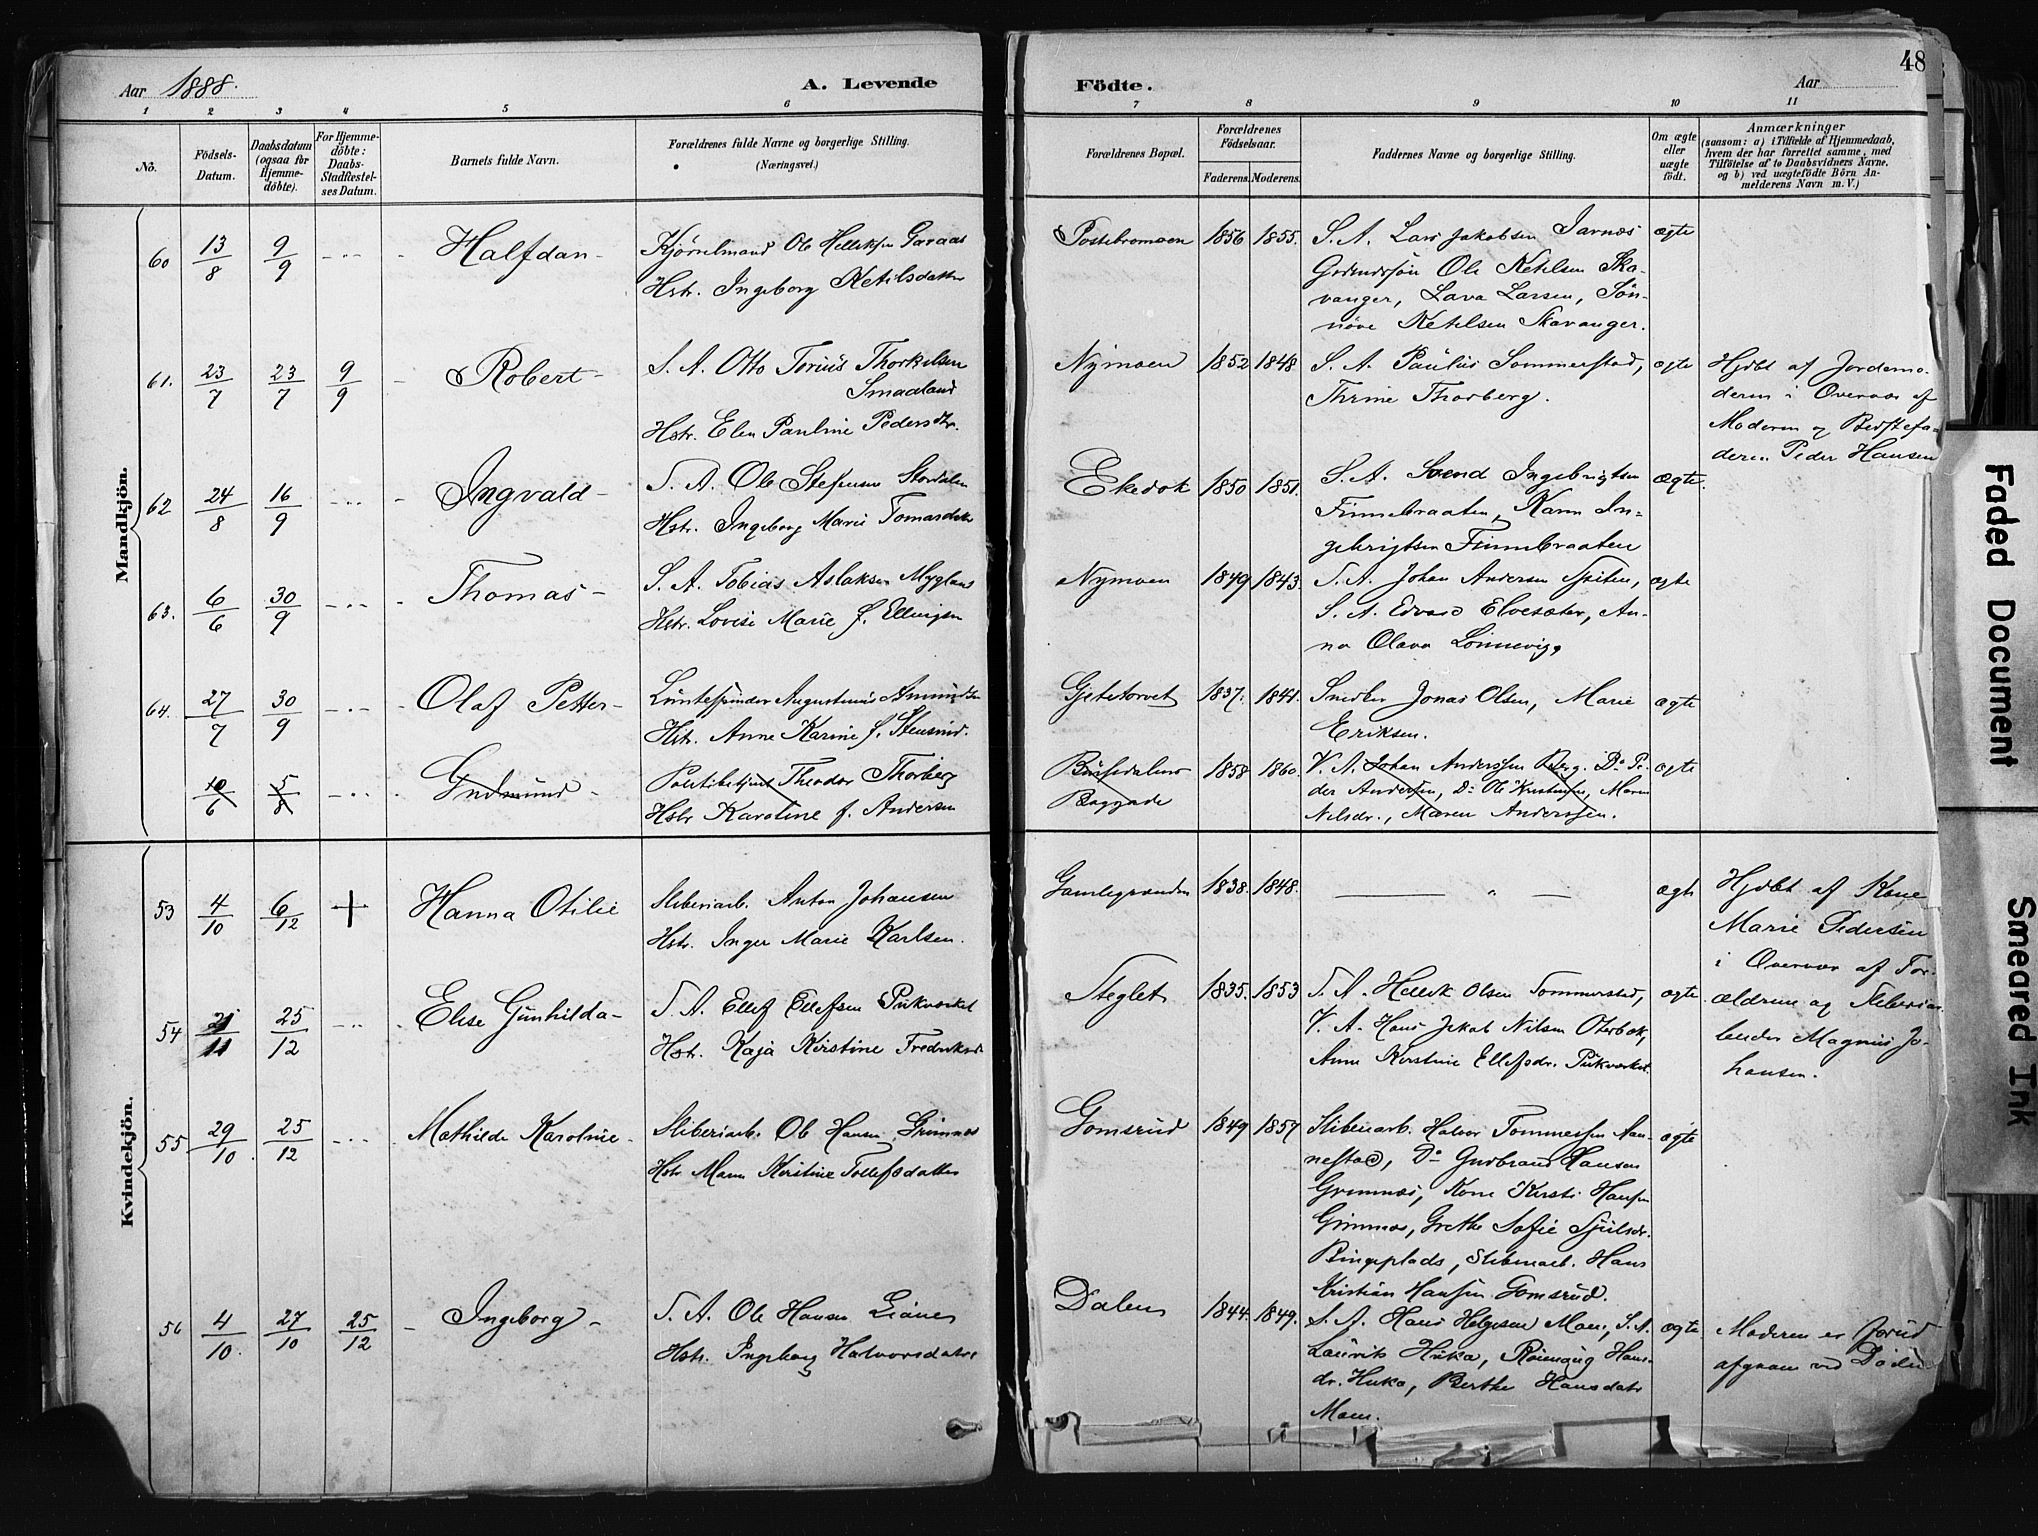 48
Aar 1888.
A. Levende
Födte.
Aar
1 2 3 4 5 6 7 8 9 10 11
No.
Födsels-
Datum.
Daabsdatum
(ogsaa for
Hjemme-
döbte).
For Hjemme-
döbte:
Daabs-
Stadfæstel-
ses Datum.
Barnets fulde Navn.
Forældrenes fulde Navne og borgerlige Stilling.
(Næringsvei.)
Forældrenes Bopæl.
Forældrenes
Födselsaar.
Faderens. Moderens.
Faddernes Navne og borgerlige Stilling.
Om ægte
eller
uægte
födt.
Anmærkninger
(saasom: a) i Tilfælde af Hjemmedaab,
hvem der har forrettet samme, med
Tilföielse af to Daabsvidners Navne.
og b) ved uægtefödte Börn An-
melderens Navn m. V.)
Mandkjön.
60 13/8 9/9 Halfdan
Kjørelmand Ole Helleksen Garaas
Hstr. Ingeborg Ketilsdatter
1856 1855.
S. A. Lars Jakobsen Jarnæs
Ole Ketelsen Ska-
vanger, Lava Larsen, Søn-
nøve Ketelsen Skavanger.
ægte
61. 23/7 23/7 9/9 Robert
S. A. Otto Torius Thorkelsen
Smaaland
Hstr. Elen Pauline Pedersdtr.
Nymoen 1852 1848
S. A. Paulus Sommerstad,
Thrine Thorberg.
ægte
Hjdbt af Jordemo-
deren i Overvær af
Moderen og Bedstefa-
deren Peder Hansen
62 24/8 16/9 Ingvald
S. A. Ole Stefensen Stordalen
Hstr. Ingeborg Marie Tomasdatter
Ekedok 1850 1851.
S. A. Svend Ingebrigtsen
Finnebraaten, Karen In-
gebrigtsen Finnebraaten
ægte.
63. 6/6 30/9 Thomas
S. A. Tobias Aslaksen Myglaus
Hstr. Lovise Marie f. Ellingsen
Nymoen 1849 1843.
S. A. Johan Andersen Spiten,
S. A. Edvard Elvesæter, An-
na Olava Lønnevig.
ægte
64. 27/7 30/9 Olaf Petter
Luntespinder Augustinus Amundsen
Hstr. Anne Karine f. Stensrud.
Gjetetorvet 1837. 1841.
Snedker Jonas Olsen, Marie
Eriksen.
ægte
10/6 5/8 Gudmund
Politibetjent Theodor Thorberg
Hstr Karoline f. Andersen
Bussedalens
Baggade
1858 1860.
V. A. Johan Anderssen Berg. Do Pe-
der Andersen, Do Ole Kristensen, Maren
Nilsdr., Maren Anderssen.
ægte
Kvindekjön.
53 4/10 6/12 + Hanna Otilie
Sliberiarb. Anton Johansen
Hstr. Inger Marie Karlsen.
Gamlegrænden 1838. 1848.
ægte
Hjdbt af Kone
Marie Pedersen
i Overvær af For-
ældrene og Sliberiar-
beider Magnus Jo-
hansen.
54 21/11 25/12 Elise Gunhilda
S. A. Ellef Ellefsen Pukværket
Hstr. Kaja Kirstine Fredriksd.
Steglet 1835. 1853
S. A. Hellek Olsen Tommerstad,
V. A. Hans Jakob Nilsen Oterbæk,
Anne Kirstine Ellefsdr. Pukværket.
ægte
55 29/10. 25/12 Mathilde Karoline
Sliberiarb. Ole Hansen Grimnæs
Hstr Maren Kristine Tollefsdatter
Gomsrud 1849 1857
Sliberiarb. Halvor Tommessen Nan-
nestad, Do Gudbrand Hansen
Grimnæs, Kone Kirsti Hansen
Grimnæs, Grethe Sofie Sjulsdr.
Bingeplads, Sliberiarb. Hans
Kristian Hansen Gomsrud.
ægte
56 4/10. 27/10 25/12 Ingeborg
S. A. Ole Hansen Lianes
Hstr. Ingeborg Halvorsdatter
Dalen 1844. 1849.
S. A. Hans Helgesen Moen, S. A.
Laurits Huka, Rønnaug Hans-
dr. Huka, Berthe Hansdatr
Moen.
ægte
Moderen er forud
afgaaen ved Døden
Faded Document
Smeared Ink